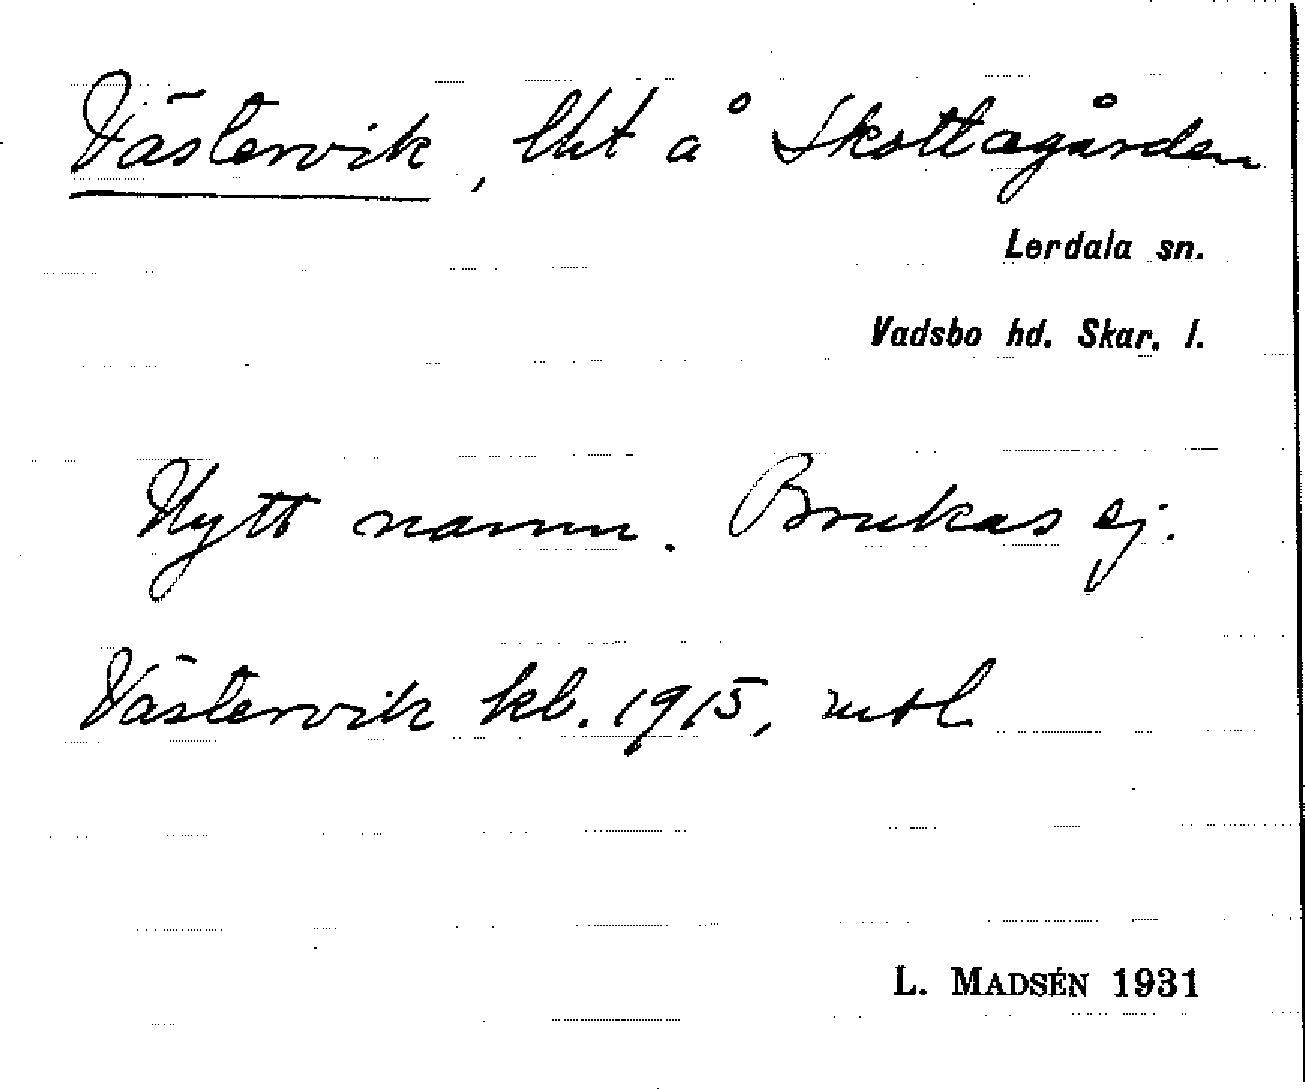 Västervik, lht å Skattegården
Lerdala sn.
Vadsbo hd. Skar. l.
Nytt namn. Brukas ej.
Västervik kb. 1915, mtl
L. MADSÉN 1931